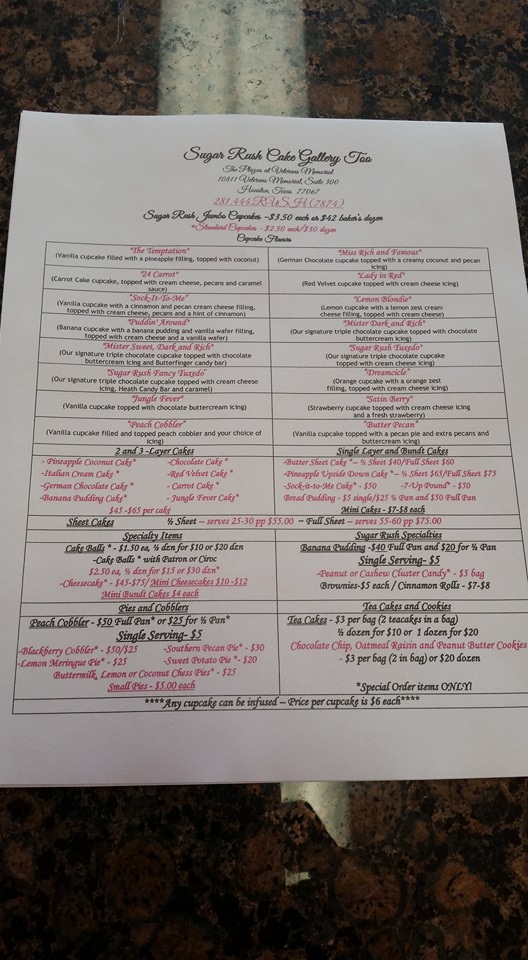 Sugar Rush Cake Gallery Too
The Plazas at Veterans Memorial
10811 Veterans Memorial, Suite 300
Houston, Texas 77067
281.444.RUSH (7874)
Sugar Rush Jumbo Cupcakes ~$3.50 each or $42 baker's dozen
*Standard Cupcakes - $2.50 each/$30 dozen
Cupcake Flavors
"The Temptation"
(Vanilla cupcake filled with a pineapple filling, topped with coconut)
"Miss Rich and Famous"
(German Chocolate cupcake topped with a creamy coconut and pecan
icing)
"24 Carrot"
(Carrot Cake cupcake, topped with cream cheese, pecans and caramel
sauce)
"Lady in Red"
(Red Velvet cupcake topped with cream cheese icing)
"Sock-It-To-Me"
(Vanilla cupcake with a cinnamon and pecan cream cheese filling,
topped with cream cheese, pecans and a hint of cinnamon)
"Lemon Blondie"
(Lemon cupcake with a lemon zest cream
cheese filling, topped with cream cheese)
"Puddin' Around"
(Banana cupcake with a banana pudding and vanilla wafer filling,
topped with cream cheese and a vanilla wafer)
"Mister Dark and Rich"
(Our signature triple chocolate cupcake topped with chocolate
buttercream icing)
"Mister Sweet, Dark and Rich"
(Our signature triple chocolate cupcake topped with chocolate
buttercream icing and Butterfinger candy bar)
"Sugar Rush Tuxedo"
(Our signature triple chocolate cupcake
topped with cream cheese icing)
"Sugar Rush Fancy Tuxedo"
(Our signature triple chocolate cupcake topped with cream cheese
icing, Heath Candy Bar and caramel)
"Dreamcicle"
(Orange cupcake with a orange zest
filling, topped with cream cheese icing)
"Jungle Fever"
(Vanilla cupcake topped with chocolate buttercream icing)
"Satin Berry"
(Strawberry cupcake topped with cream cheese icing
and a fresh strawberry)
"Peach Cobbler"
(Vanilla cupcake filled and topped peach cobbler and your choice of
icing)
"Butter Pecan"
(Vanilla cupcake topped with a pecan pie and extra pecans and
buttercream icing)
2 and 3 -Layer Cakes
- Pineapple Coconut Cake* -Chocolate Cake *
-Italian Cream Cake * -Red Velvet Cake *
-German Chocolate Cake * - Carrot Cake *
-Banana Pudding Cake* - Jungle Fever Cake*
$45 -$65 per cake
Single Layer and Bundt Cakes
-Butter Sheet Cake *~ ½ Sheet $40/Full Sheet $60
-Pineapple Upside Down Cake *~ ½ Sheet $65/Full Sheet $75
-Sock-it-to-Me Cake* - $50 -7-Up Pound* - $50
Bread Pudding - $5 single/$25 ½ Pan and $50 Full Pan
Mini Cakes - $7-$8 each
Sheet Cakes ½ Sheet – serves 25-30 pp $55.00 ~ Full Sheet – serves 55-60 pp $75.00
Specialty Items
Cake Balls * - $1.50 ea, ½ dzn for $10 or $20 dzn
-Cake Balls * with Patron or Ciroc
$2.50 ea, ½ dzn for $15 or $30 dzn*
-Cheesecake* - $45-$75/ Mini Cheesecakes $10 -$12
Mini Bundt Cakes $4 each
Sugar Rush Specialties
Banana Pudding -$40 Full Pan and $20 for ½ Pan
Single Serving- $5
-Peanut or Cashew Cluster Candy* - $5 bag
Brownies-$5 each / Cinnamon Rolls - $7-$8
Pies and Cobblers
Peach Cobbler - $50 Full Pan* or $25 for ½ Pan*
Single Serving- $5
-Blackberry Cobbler* - $50/$25 -Southern Pecan Pie* - $30
-Lemon Meringue Pie* - $25 -Sweet Potato Pie *- $20
Buttermilk, Lemon or Coconut Chess Pies* - $25
Small Pies - $5.00 each
Tea Cakes and Cookies
Tea Cakes - $3 per bag (2 teacakes in a bag)
½ dozen for $10 or 1 dozen for $20
Chocolate Chip, Oatmeal Raisin and Peanut Butter Cookies
- $3 per bag (2 in bag) or $20 dozen
*Special Order items ONLY!
****Any cupcake can be infused – Price per cupcake is $6 each****